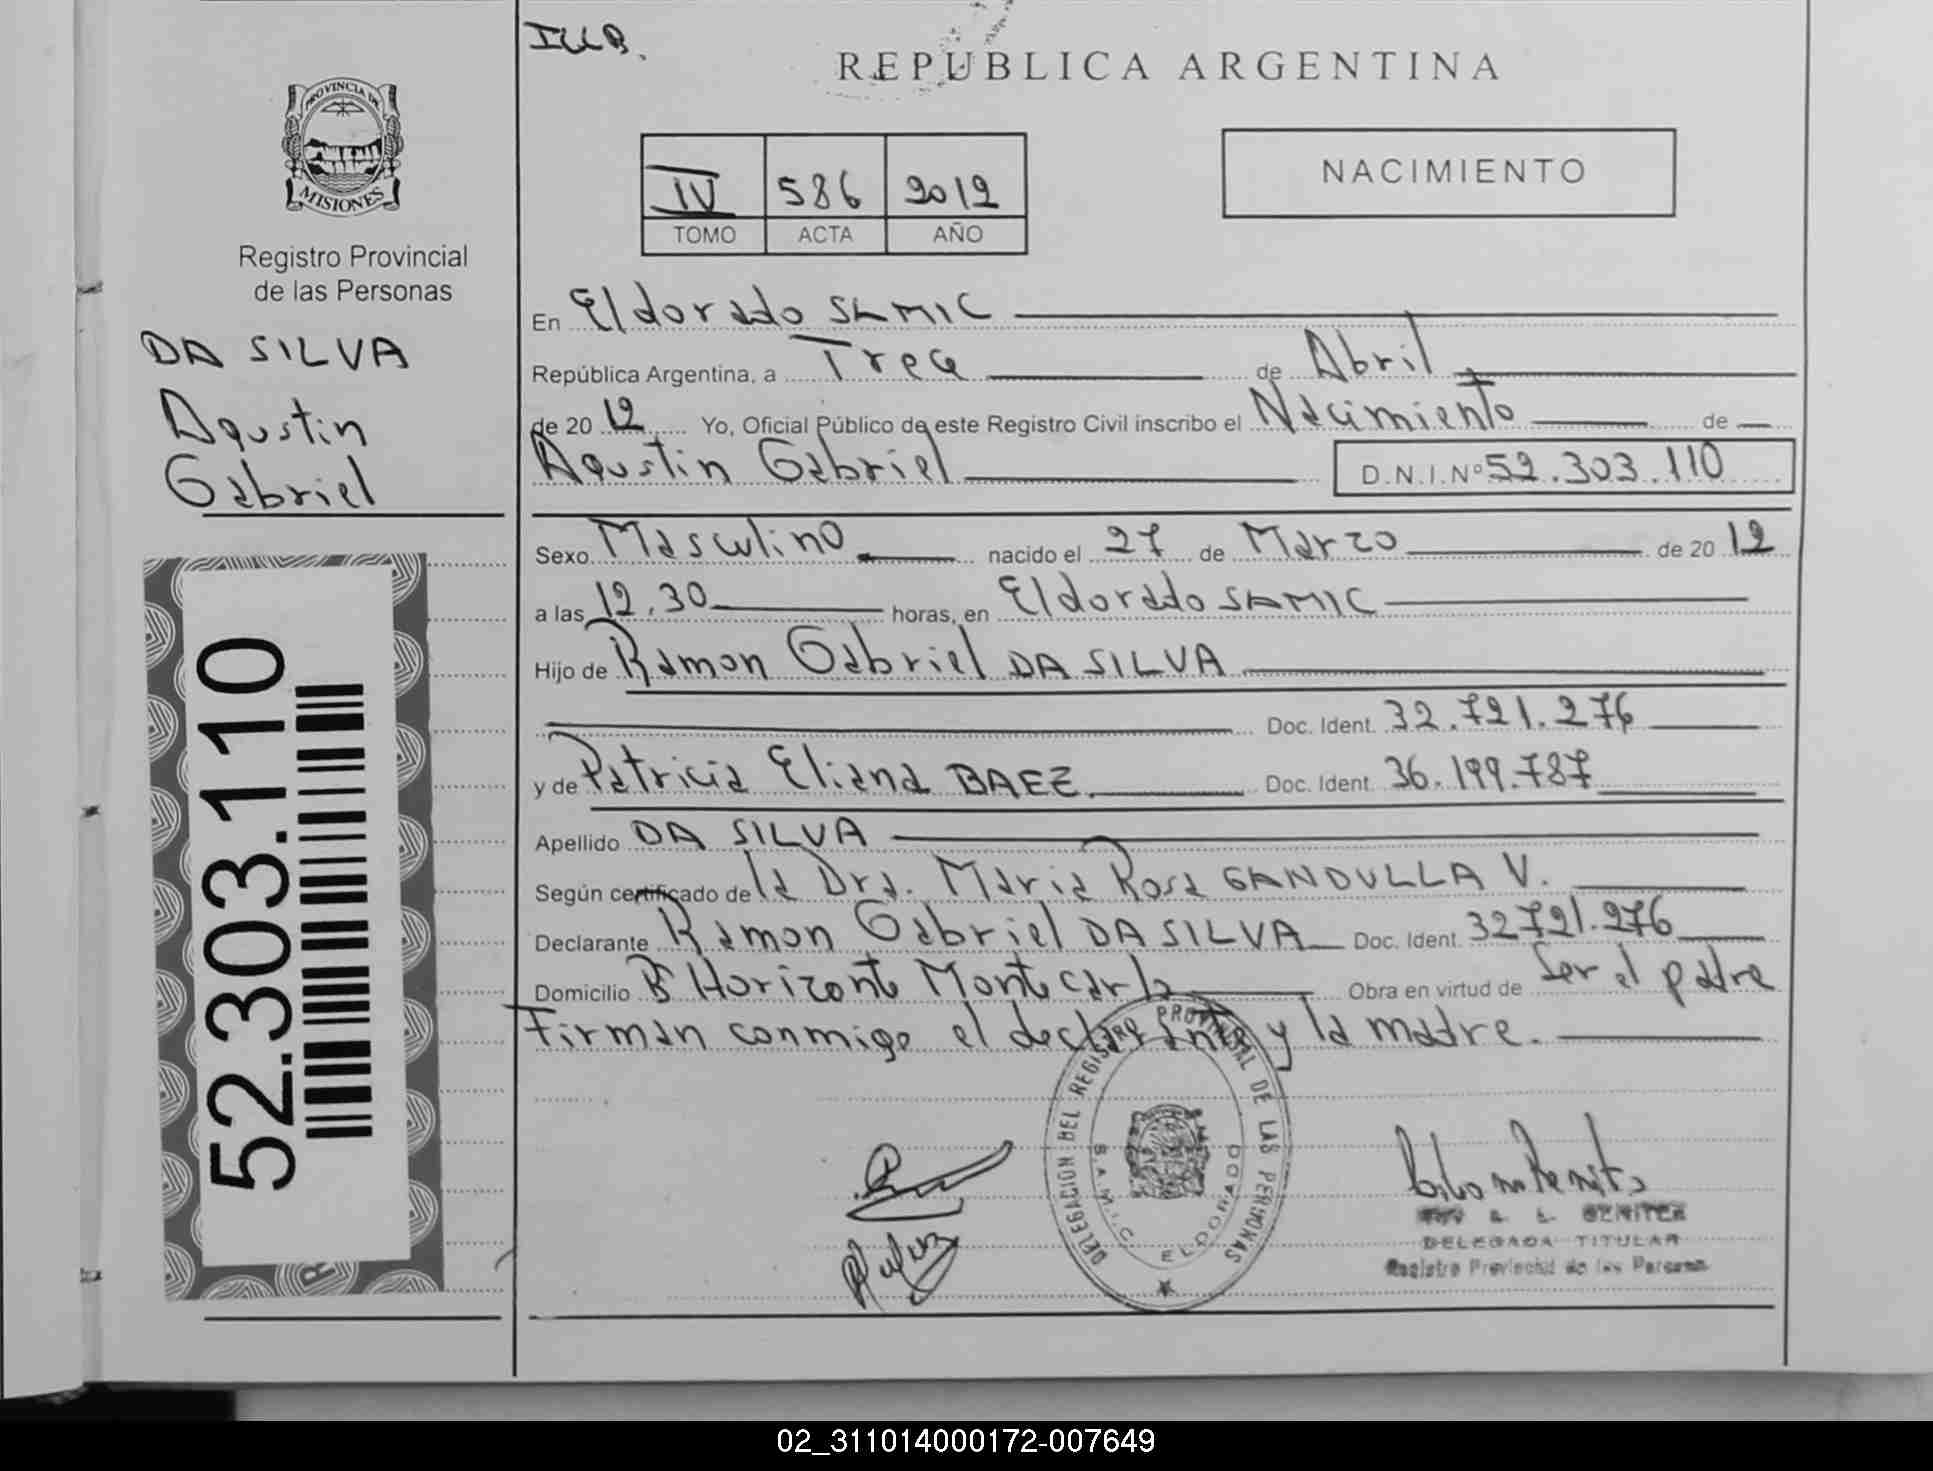 REPUBLICA ARGENTINA
PROVINCIA DE
MISIONES
Registro Provincial
de las Personas
DA SILVA
Agustin
Gabriel
52.303.110
IV 586 2012
TOMO ACTA AÑO
NACIMIENTO
En Eldorado SAMIC
República Argentina, a Trece de Abril
de 2012 Yo, Oficial Público de este Registro Civil inscribo el Nacimiento de
Agustin Gabriel D.N.I.Nº 52.303.110
Sexo Masculino nacido el 27 de Marzo de 2012
a las 12.30 horas, en Eldorado SAMIC
Hijo de Ramon Gabriel DA SILVA
Doc. Ident. 32.721.276
y de Patricia Eliana BAEZ. Doc. Ident. 36.199.787
Apellido DA SILVA
Según certificado de la Dra. Maria Rosa GANDULLA V.
Declarante Ramon Gabriel DA SILVA Doc. Ident. 32721.276
Domicilio Bº Horizonte Montecarlo Obra en virtud de Ser el padre
Firman conmigo el declarante y la madre.
DELEGACION DEL REGISTRO PROVINCIAL DE LAS PERSONAS
S.A.M.I.C. ELDORADO
BENITEZ
DELEGADA TITULAR
Registro Provincial de las Personas
02_311014000172-007649